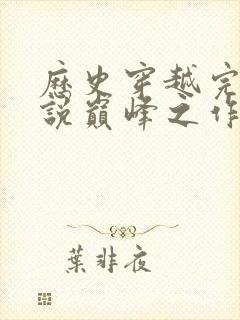 歷史穿越完
說巔峰之作
葉非夜